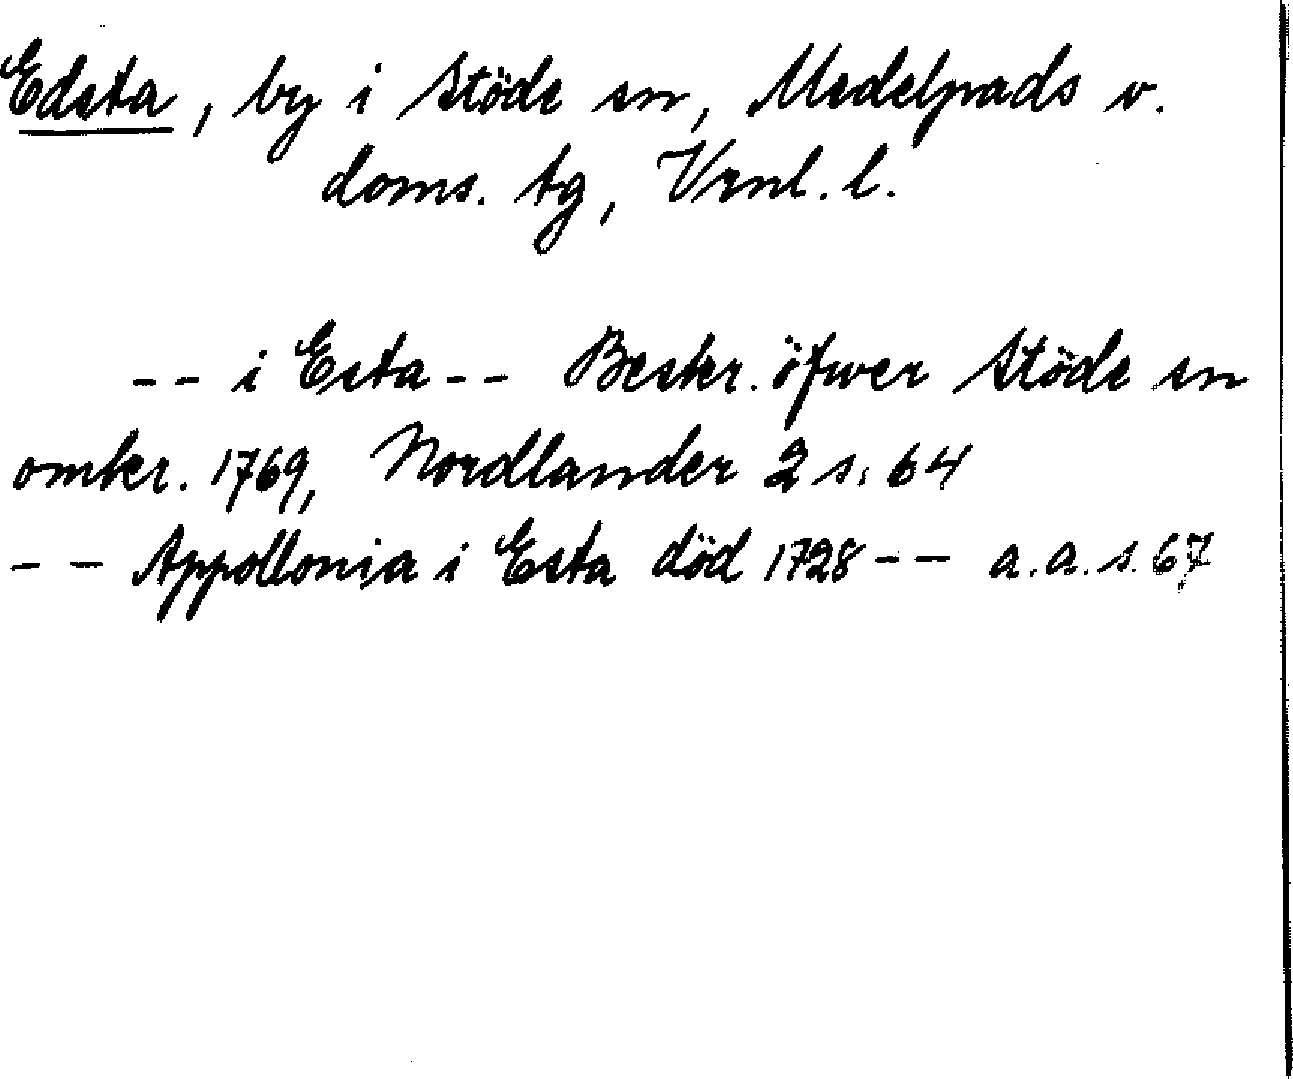 Edsta, by i Stöde sn, Medelpads v.
doms. tg, Vrnl. l.
-- i Esta -- Beskr. öfwer Stöde sn
omkr. 1769, Nordlander 2 s. 64
-- Appollonia i Esta död 1728 -- a.a. s. 67